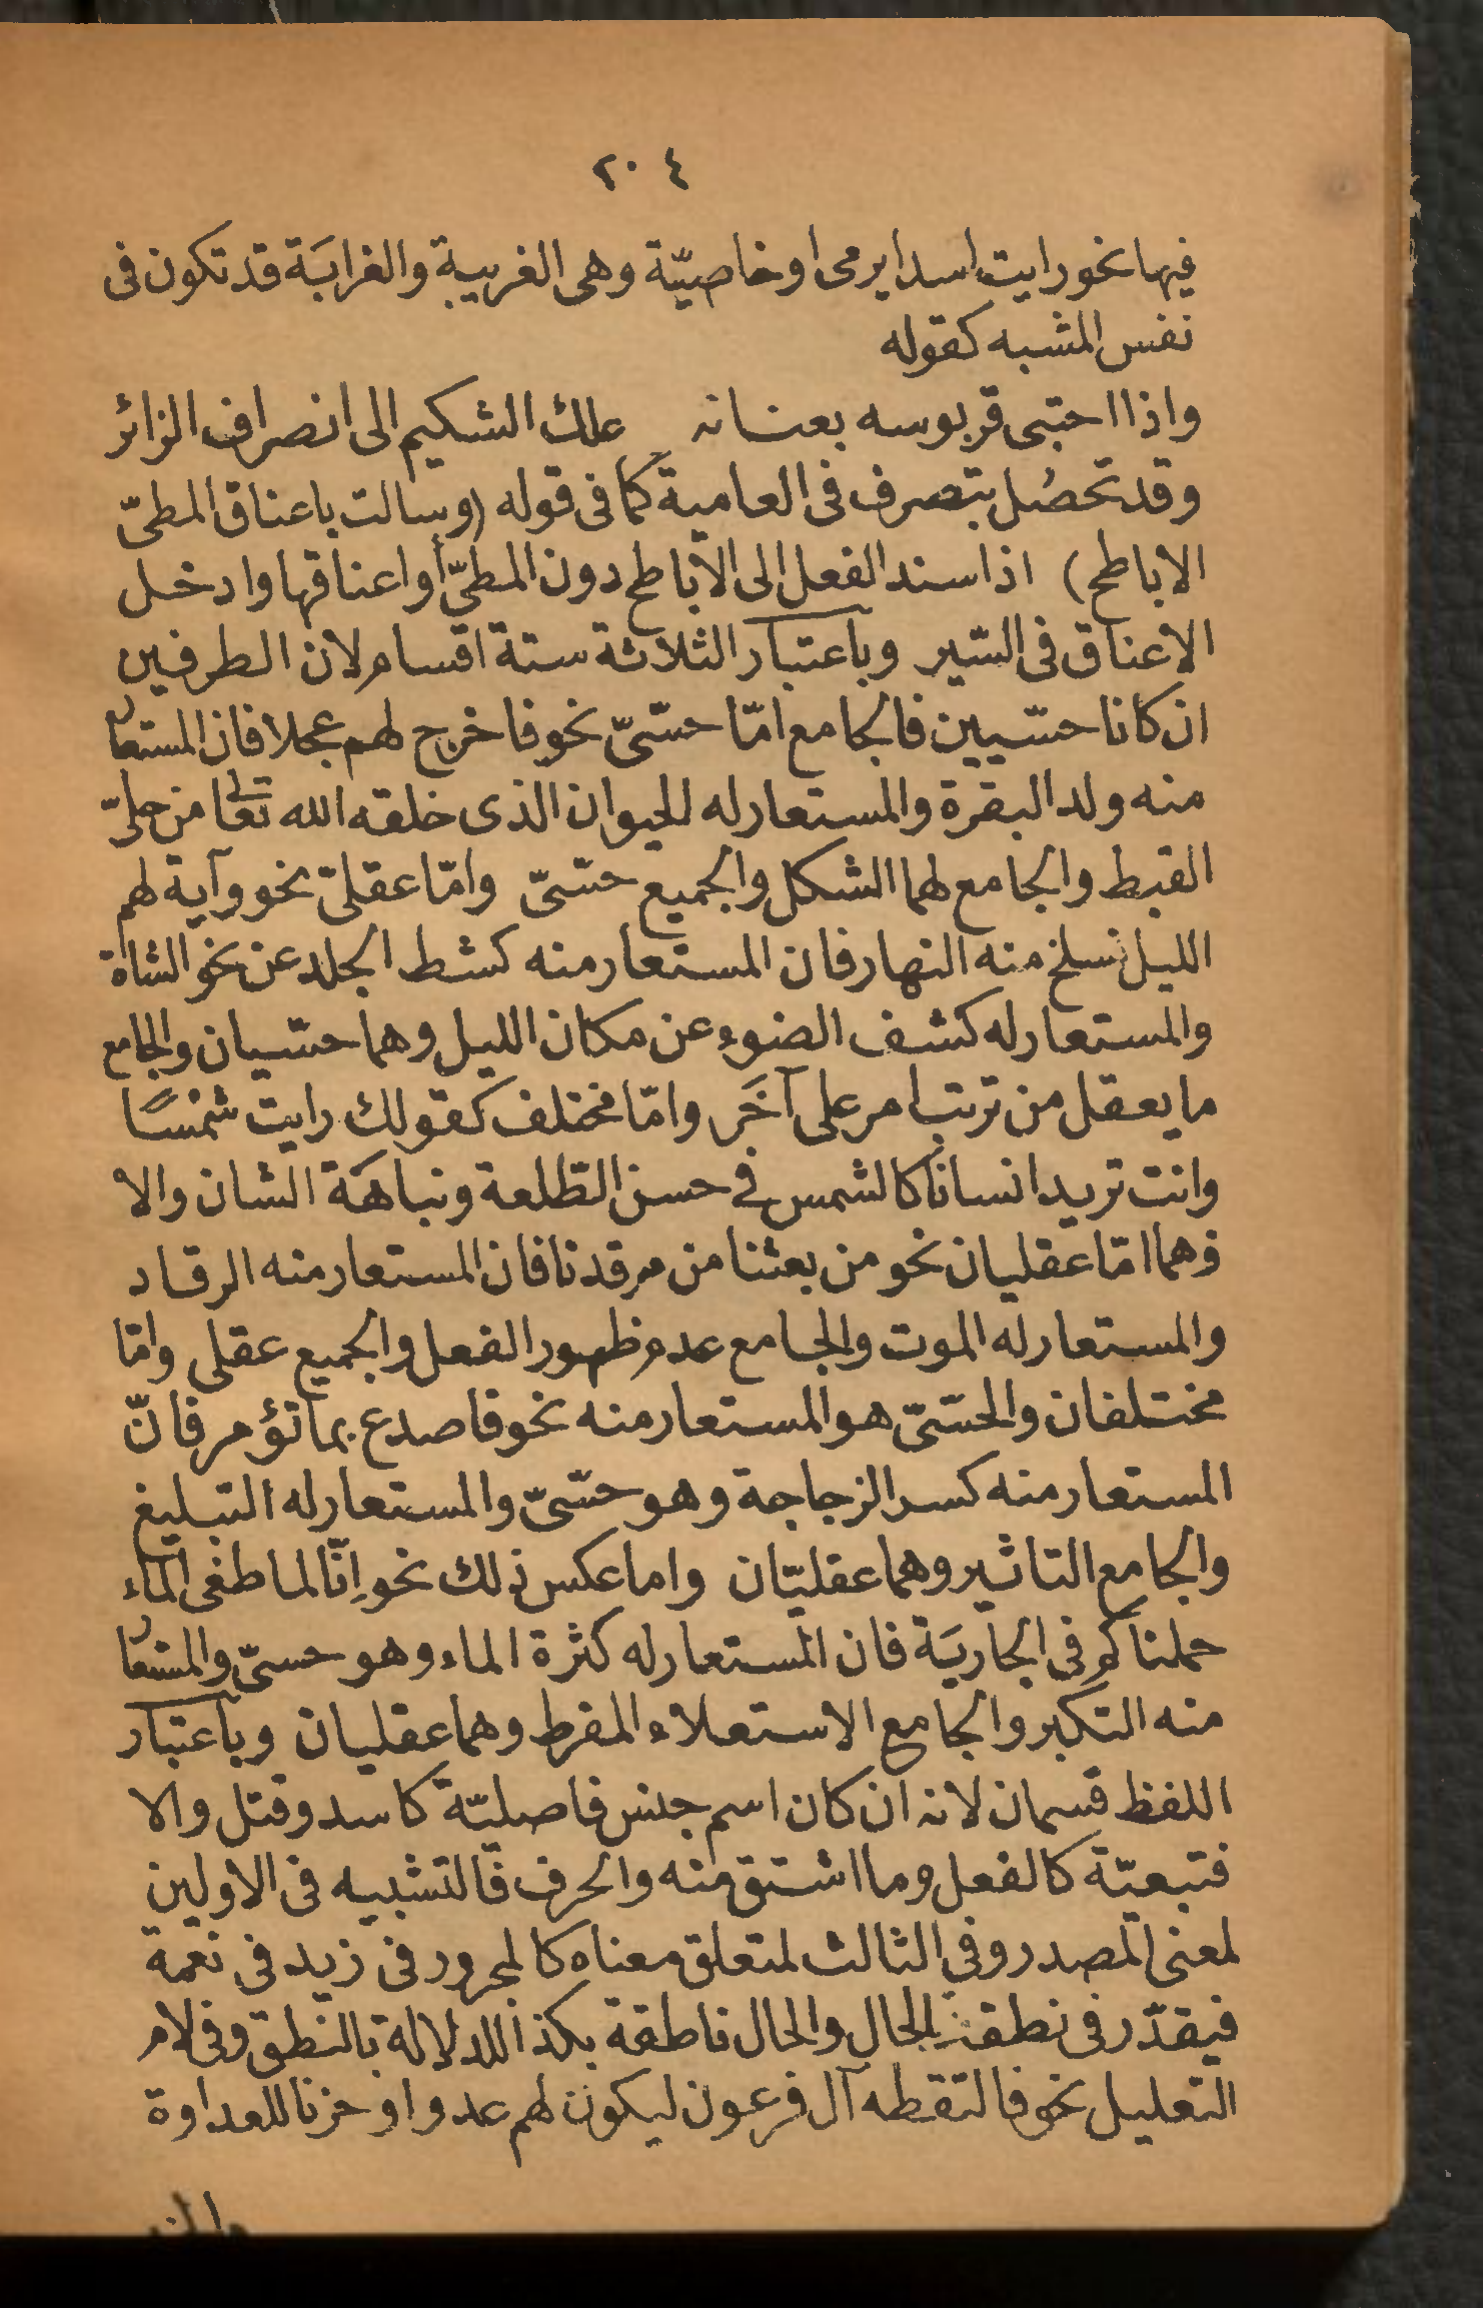 ٢٠٤
فيها نحو رايت اسدا يرمى او خاصيّة وهى الغريبة والغرابَة قد تكون فى
نفس المشبه كقوله
واذا احتبى قربوسه بعنانه علك الشكيم الى انصراف الزائر
وقد تحصُل بتصرف فى العامية كما فى قوله (وسالت باعناق المطىّ
الاباطح) اذ اسند الفعل الى الاباطح دون المطىّ أو اعناقها وادخل
الاعناق فى السّير وباعتبار الثلاثة ستة اقسام لان الطرفين
ان كانا حسّيين فالجامع امّا حسّىّ نحو فاخرج لهم عجلا فان المستعار
منه ولد البقرة والمستعار له الحيوان الذى خلقه الله تعالى من حلىّ
القبط والجامع لهما الشكل والجميع حسّىّ وامّا عقلىّ نحو وآية لهم
الليل نسلخ منه النهار فان المستعار منه كشط الجلد عن نحو الشاة
والمستعار له كشف الضوء عن مكان الليل وهما حسّيان والجامع
ما يعقل من ترتب امر على آخَر وامّا مختلف كقولك رايت شمْسًا
وانت تريد انسانًا كالشمس فى حسن الطّلعة ونباهَة الشان والا
فهما امّا عقليان نحو من بعثنا من مرقدنا فان المستعار منه الرقاد
والمستعار له الموت والجامع عدم ظهور الفعل والجميع عقلى وامّا
مختلفان والحسّىّ هو المستعار منه نحو فاصدع بما تؤمر فانّ
المستعار منه كسر الزجاجة وهو حسّىّ والمستعار له التبليغ
والجامع التاثير وهما عقليّان واما عكس ذلك نحو اِنّا لما طغى الماء
حملناكم فى الجاريَة فان المستعار له كثرة الماء وهو حسىّ والمستعار
منه التكبر والجامع الاستعلاء المفرط وهما عقليان وباعتبار
اللفظ قسمان لانه ان كان اسم جنس فاصليّة كاسد وقتل والا
فتبعيّة كالفعل وما اشتق منه والحرف فالتشبيه فى الاولين
لمعنى المصدر وفى الثالث لمتعلق معناه كالمجرور فى زيد فى نعمة
فيقدّر فى نطقت الحال والحال ناطقة بكذا للدلالة بالنطق وفى لام
التعليل نحو فالتقطه آل فرعون ليكون لهم عدوا وحزنا للعداوة